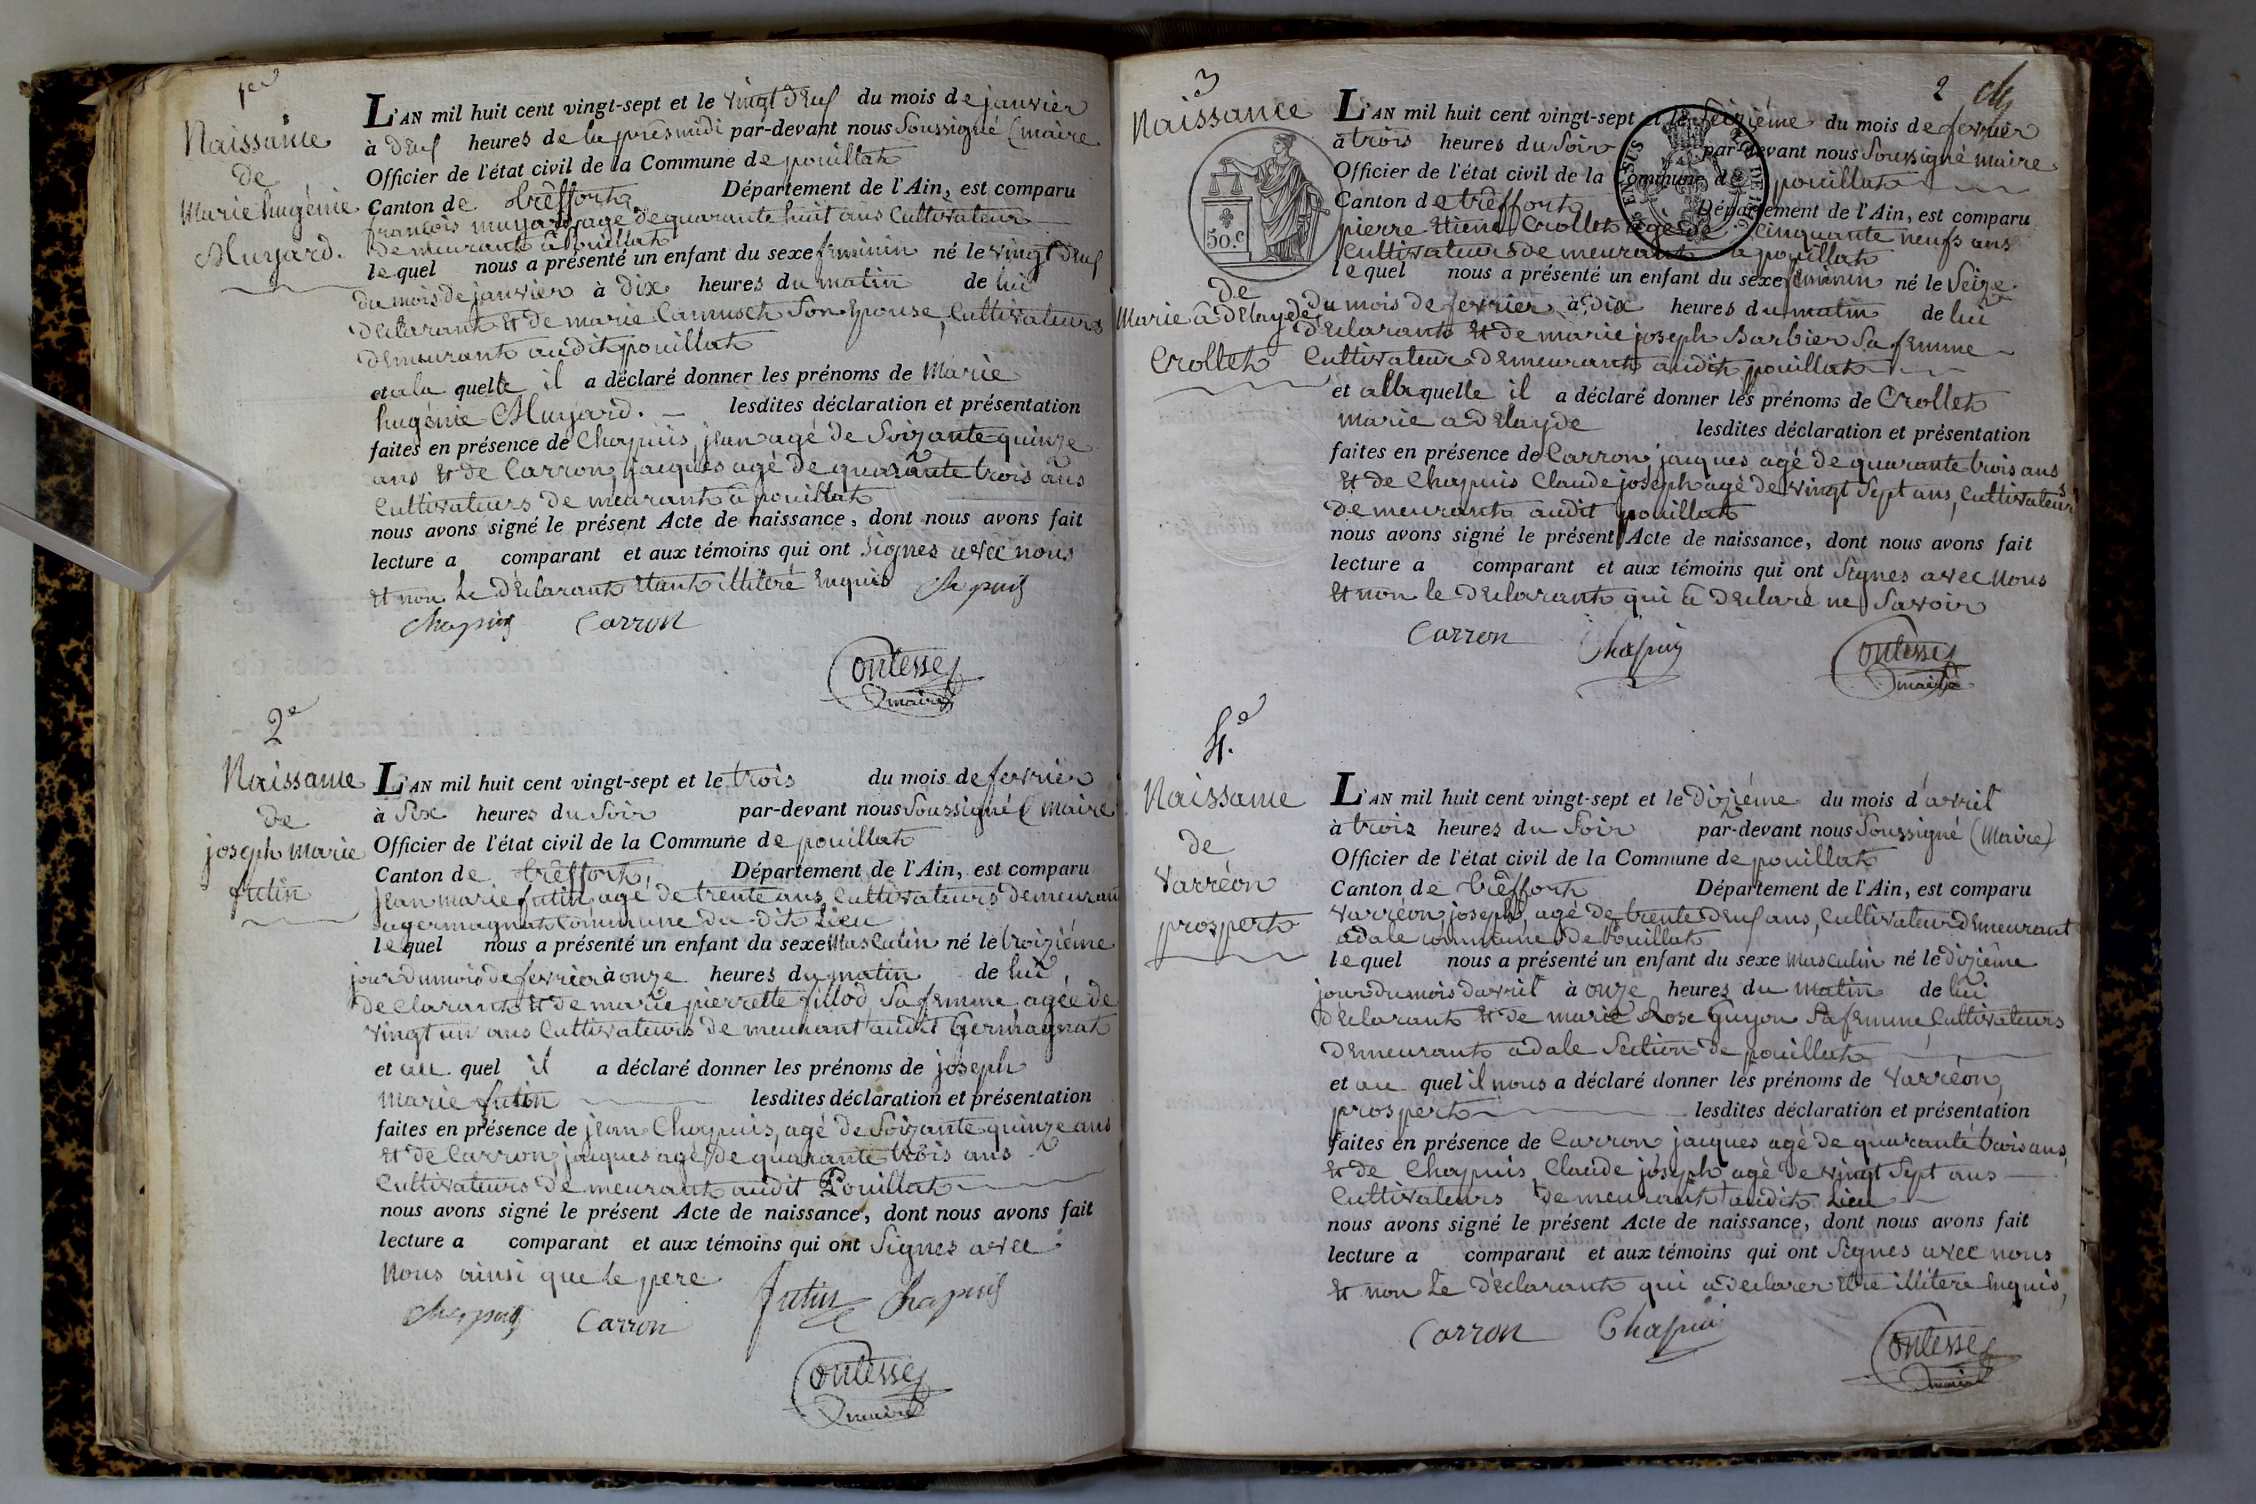 1er
Naissance
de
Marie hugénie
Muyard.
L'AN mil huit cent vingt-sept et le vingt deuf du mois de janvier
à deuf heures de la présmidi par-devant nous Soussigné (maire
Officier de l'état civil de la Commune de pouillat
Canton de trêffort Département de l'Ain, est comparu
francois muyard, agé de quarante huit ans Cultivateur
demeurant à pouillat
lequel nous a présenté un enfant du sexe feminin né le vingt deuf
du mois de janvier à dix heures du matin de lui
déclarant et de marie Camusch Son Epouse, Cultivateurs
demeurant audit pouillat
et a la quelle il a déclaré donner les prénoms de Marie
hugénie Muyard. lesdites déclaration et présentation
faites en présence de Chapuis, jean agé de Soizante quinze
ans et de Carron, jacques agé de quarante trois ans
Cultivateurs demeurant à pouillat
nous avons signé le présent Acte de naissance, dont nous avons fait
lecture a comparant et aux témoins qui ont Signes avec nous
et non le déclarant étant illitéré Enquis Chapuis
Chapuis Carron
Contesse
maire
2e
Naissance
de
joseph marie
futin
L'AN mil huit cent vingt-sept et le trois du mois de fevrier
à Six heures du Soir par-devant nous Soussigné (maire
Officier de l'état civil de la Commune de pouillat
Canton de trêffort, Département de l'Ain, est comparu
jean marie futin, agé de trente ans, Cultivateurs demeurant
a germagnat Commune du-dit Lieu
lequel nous a présenté un enfant du sexe Masculin né le troizième
jour du mois de fevrier à onze heures du matin de lui,
declarant et de marie pierrette fillod Sa femme agée de
vingt un ans Cultivateurs demeurant audit Germagnat
et au quel il a déclaré donner les prénoms de joseph
marie futin lesdites déclaration et présentation
faites en présence de jean Chapuis, agé de Soizante quinze ans
et de Carron, jacques agé de quarante trois ans
Cultivateurs demeurant audit Pouillat
nous avons signé le présent Acte de naissance, dont nous avons fait
lecture a comparant et aux témoins qui ont Signes avec
Nous ainsi que le pere
futin Chapuis
Chapuis Carron
Contesse
maire
2
3
Naissance
50.c
de
Marie adelayde
Crollet
L'AN mil huit cent vingt-sept et le Seizième du mois de fevrier
à trois heures du Soir par-devant nous Soussigné maire
Officier de l'état civil de la Commune de pouillat
Canton de trêffort Département de l'Ain, est comparu
pierre Etiene Crollet agé de cinquante neufs ans
Cultivateurs demeurant a pouillat
lequel nous a présenté un enfant du sexe feminin né le Seize
du mois de fevrier à dix heures du matin de lui
declarant et de marie joseph Barbier Sa femme
Cultivateur demeurant audit pouillat
et alla quelle il a déclaré donner les prénoms de Crollet
marie adelayde lesdites déclaration et présentation
faites en présence de Carron jacques agé de quarante trois ans
et de Chapuis Claude joseph agé de vingt Sept ans, Cultivateurs
demeurant audit pouillat
nous avons signé le présent Acte de naissance, dont nous avons fait
lecture a comparant et aux témoins qui ont Signes avec Nous
et non le declarant qui à declaré ne Savoir
Carron Chapuis Contesse
maire
4.e
Naissance
de
Varréon
prospert
L'AN mil huit cent vingt-sept et le dizième du mois d'avril
à trois heures du Soir par-devant nous Soussigné (Maire)
Officier de l'état civil de la Commune de pouillat
Canton de trêffort Département de l'Ain, est comparu
Varréon, joseph, agé de trente deuf ans, Cultivateur demeurant
adale commune de Pouillat
lequel nous a présenté un enfant du sexe masculin né le dizième
jour du mois davril à onze heures du matin de lui
déclarant et de marie Rose Guyon Sa femme Cultivateurs
demeurant adale Section de pouillat
et au quel il nous a déclaré donner les prénoms de Varréon,
prospert lesdites déclaration et présentation
faites en présence de Carron jacques agé de quarante trois ans,
et de Chapuis Claude joseph agé de vingt Sept ans
Cultivateurs demeurant audit Lieu
nous avons signé le présent Acte de naissance, dont nous avons fait
lecture a comparant et aux témoins qui ont Signes avec nous
et non le déclarant qui a declarer etre illitere Enquis,
Carron Chapuis
Contesse
maire